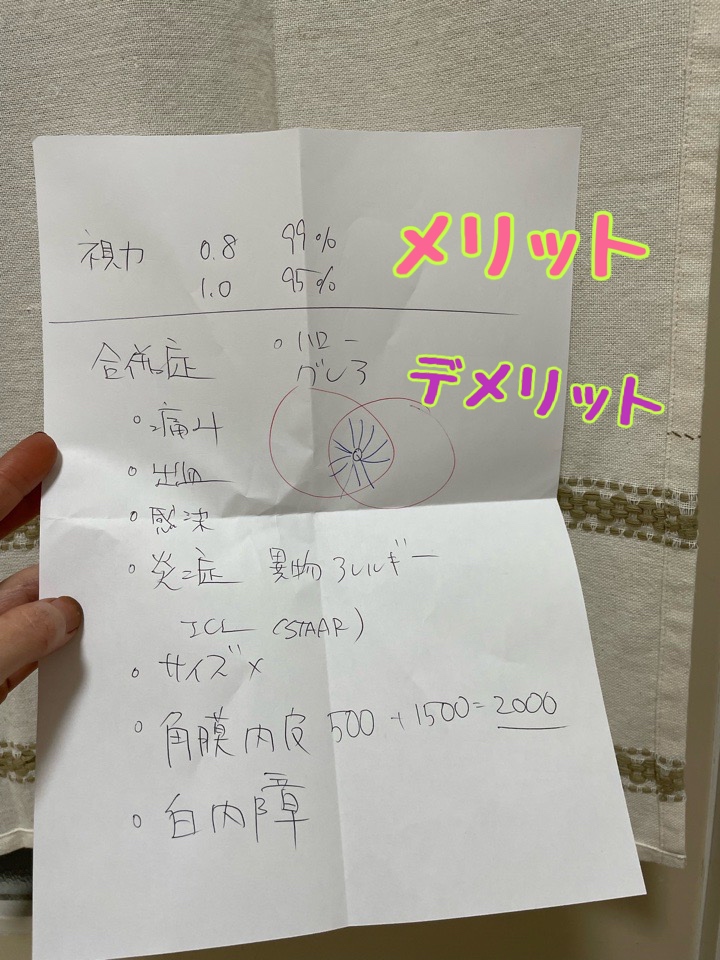 視力 0.8 99%
1.0 95%
メリット
合併症
○ハロー
グレア
デメリット
○痛み
○出血
○感染
○炎症 異物アレルギー
ICL (STAAR)
○サイズ×
○角膜内皮 500+1500=2000
○白内障